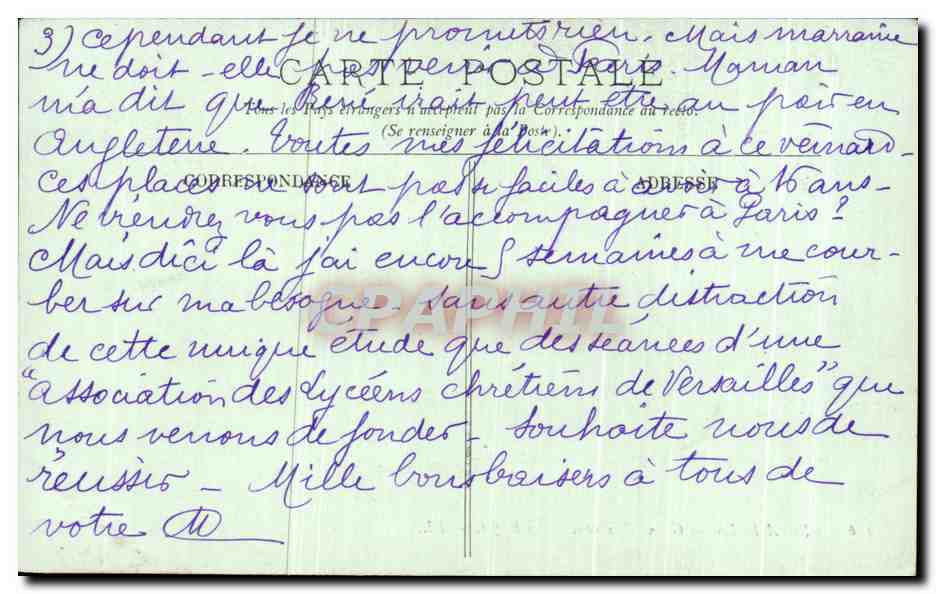 3) cependant je ne promets rien. Mais marraine
ne doit-elle pas venir à Paris. Maman
CARTE POSTALE
m'a dit que René irait peut etre au poir en
Tous les Pays étrangers n'acceptent pas la Correspondance au recto.
(Se renseigner à la Poste).
Angleterre. Toutes mes félicitations à ce
ces places ne sont pas si faciles à avoir à 16 ans-
CORRESPONDANCE
ADRESSE
Ne viendrez vous pas l'accompagner à Paris?
Mais d'ici là j'ai encore 5 semaines à me cour-
ber sur ma besogne. sans autre distraction
CPAPHIL
de cette unique étude que des séances d'une
"association des Lycéens chrétiens de Versailles" que
nous venons de fonder- souhaite nous de
réussir - Mille bons baisers à tous de
votre M